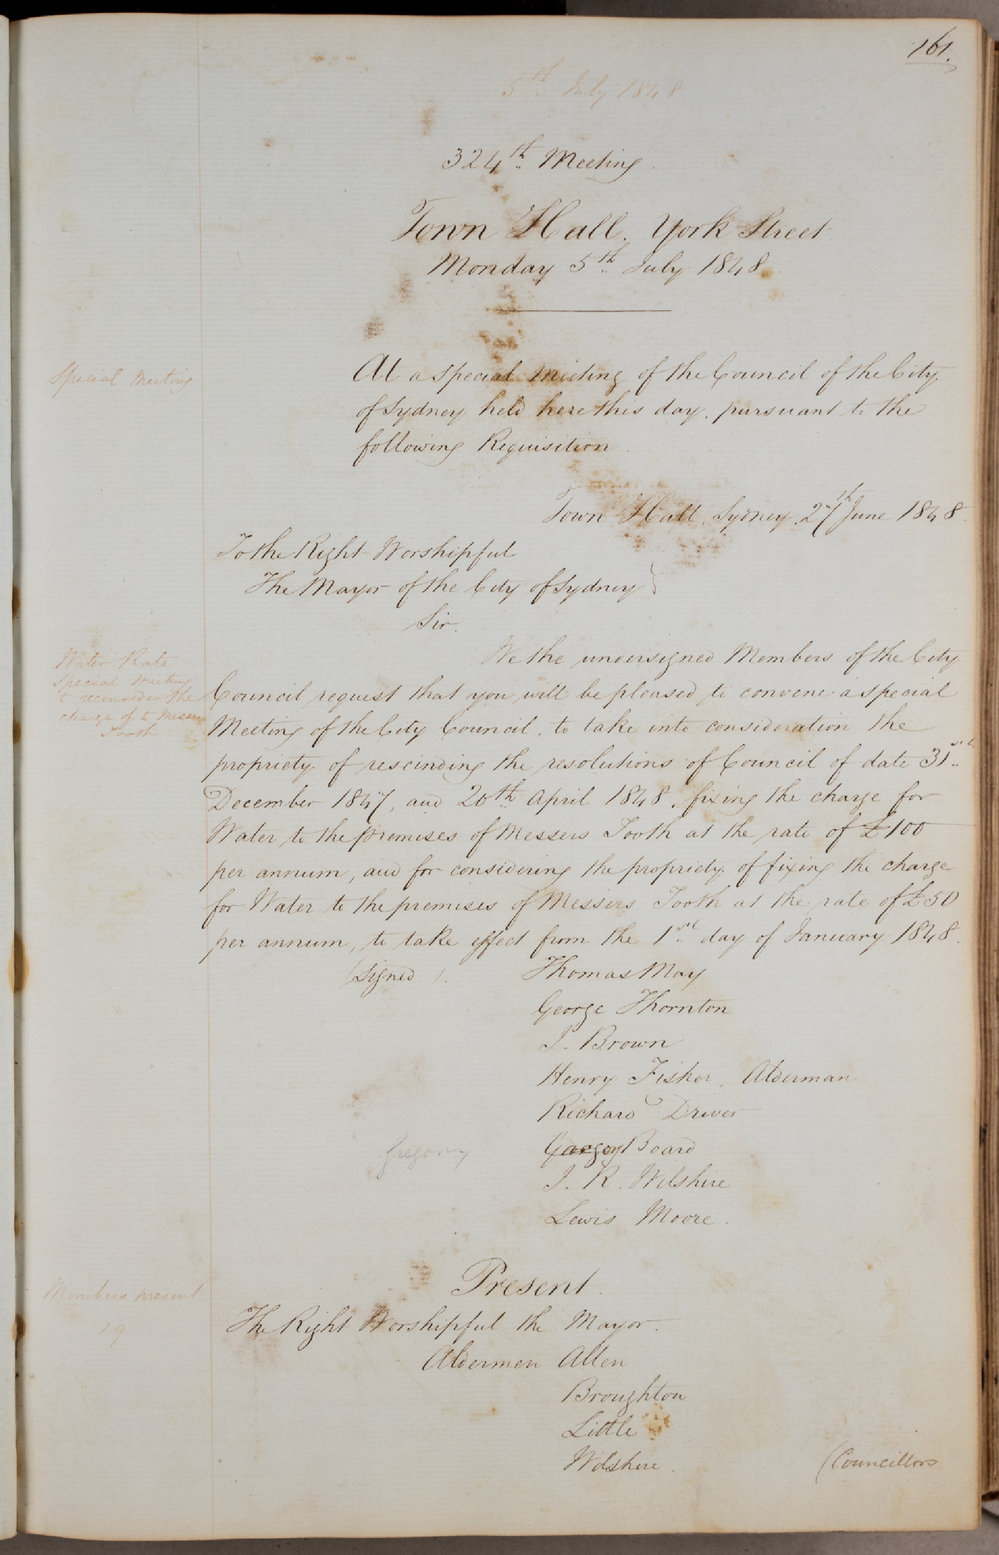 161.
5th July 1848
324th Meeting.
Town Hall. York Street
Monday 5th July 1848.
Special Meeting
At a special meeting of the Council of the City
of Sydney held here this day, pursuant to the
following Requisition.
Town Hall, Sydney 27th June 1848.
To the Right Worshipful
The Mayor of the City of Sydney }
Sir.
Water Rate
special meeting
to reconsider the
charge of to Messrs
Tooth
We the undersigned Members of the City
Council request that you will be pleased to convene a special
Meeting of the City Council, to take into consideration the
propriety of rescinding the resolutions of Council of date 31st
December 1847, and 20th April 1848, fixing the charge for
Water to the premises of Messers Tooth at the rate of £100
per annum, and for considering the propriety of fixing the charge
for Water to the premises of Messers Tooth at the rate of £50
per annum, to take effect from the 1st day of January 1848.
(Signed)
Thomas May
George Thornton
J. Brown
Henry Fisher, Alderman
Richard Driver
Gregory
Board
J. R. Wilshire
Lewis Moore.
Present.
Members present
19
The Right Worshipful the Mayor.
Aldermen Allen
Broughton
Little
Wilshire.
(Councillors